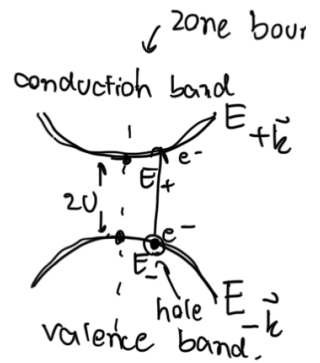 zone boun
conduction band
E+k⃗
e-
E+
2U
e-
E-
hole
E-k⃗
valence band.